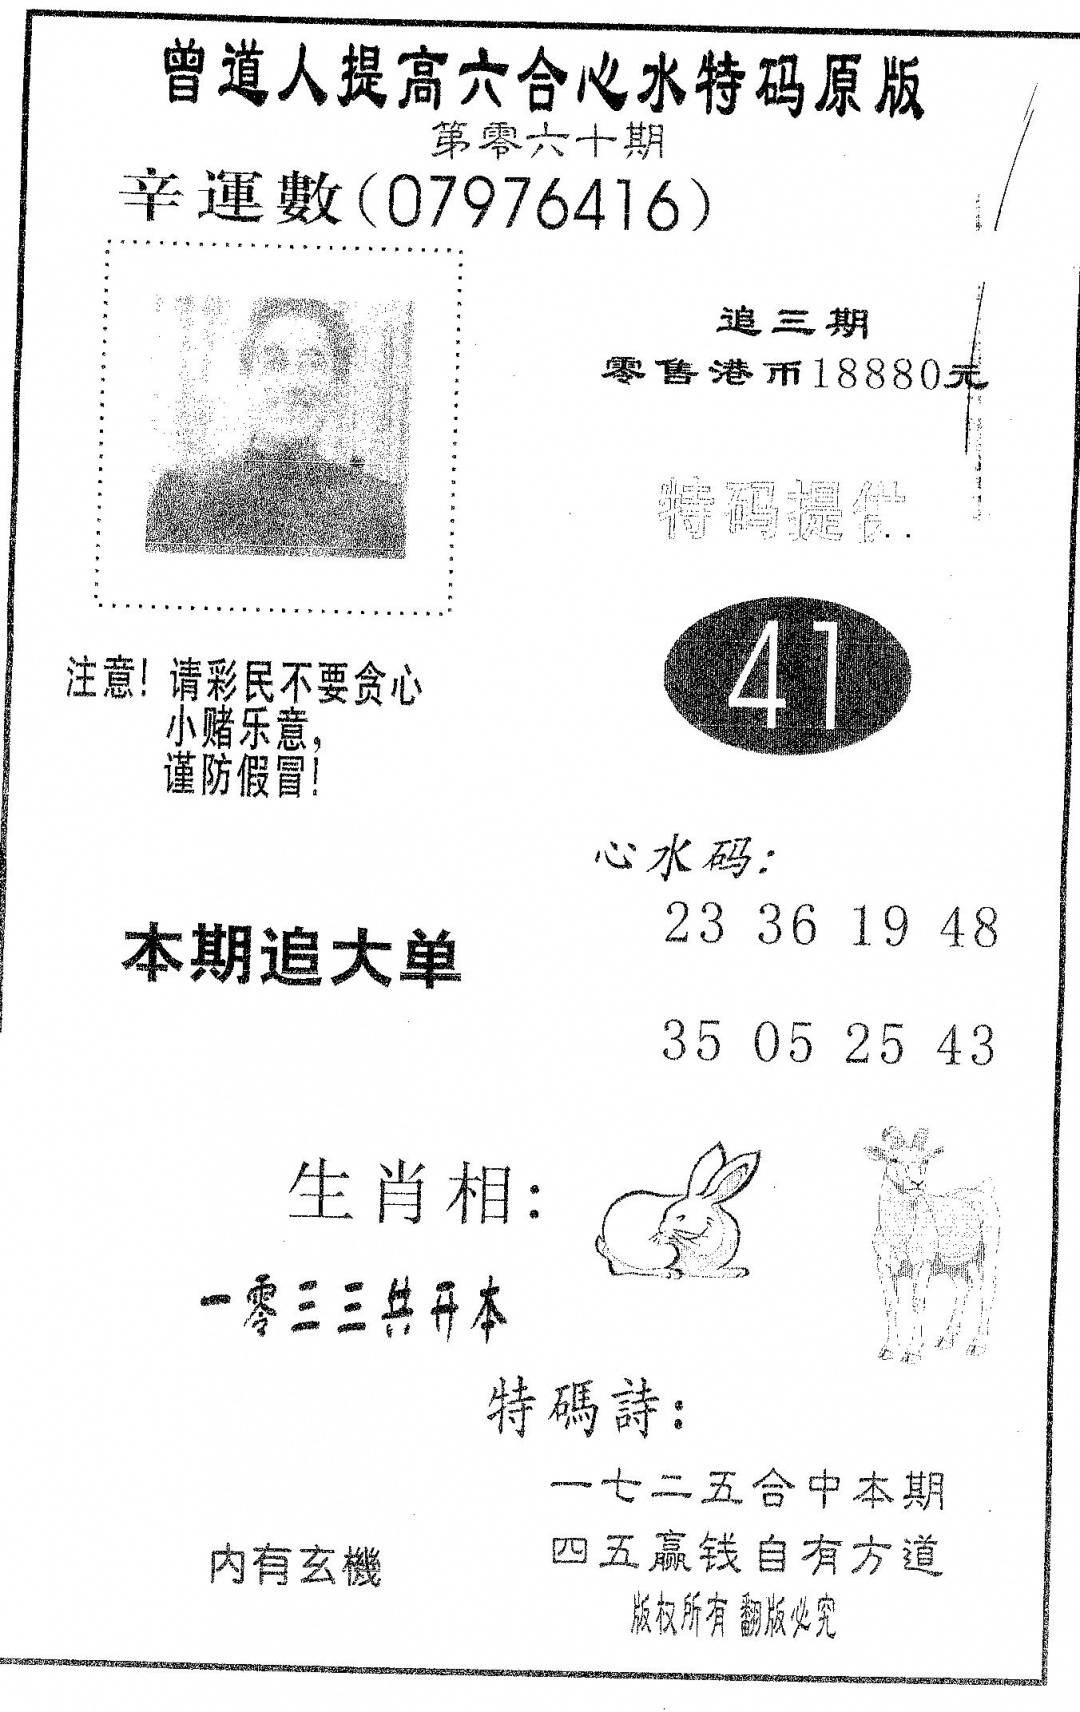 曾道人提高六合心水特码原版
第零六十期
辛運數(07976416)
追三期
零售港币18880元
特码提供..
41
注意!请彩民不要贪心
小赌乐意,
谨防假冒!
心水码:
23 36 19 48
本期追大单
35 05 25 43
生肖相:
一零三三共开本
特碼詩:
一七二五合中本期
四五赢钱自有方道
内有玄機
版权所有 翻版必究